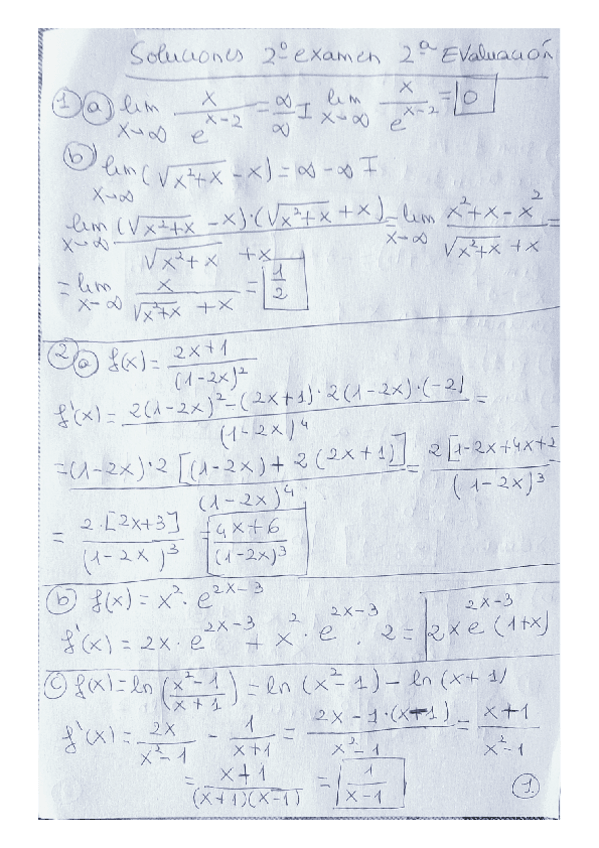 Soluciones 2º examen 2ª Evaluación
1 a) lim x→∞ x/e^(x-2) = ∞/∞ I lim x→∞ x/e^(x-2) = 0
b) lim x→∞ (√(x²+x) - x) = ∞ - ∞ I
lim x→∞ (√(x²+x) - x)·(√(x²+x) + x)/(√(x²+x) + x) = lim x→∞ (x²+x-x²)/(√(x²+x) + x) =
= lim x→∞ x/(√(x²+x) + x) = 1/2
2 a) f(x) = (2x+1)/(1-2x)²
f'(x) = (2(1-2x)² - (2x+1)·2(1-2x)·(-2))/(1-2x)⁴ =
= (1-2x)·2[(1-2x) + 2(2x+1)]/(1-2x)⁴ = 2[1-2x+4x+2]/(1-2x)³
= 2·[2x+3]/(1-2x)³ = (4x+6)/(1-2x)³
b) f(x) = x²·e^(2x-3)
f'(x) = 2x·e^(2x-3) + x²·e^(2x-3)·2 = 2xe^(2x-3)(1+x)
c) f(x) = ln((x²-1)/(x+1)) = ln(x²-1) - ln(x+1)
f'(x) = 2x/(x²-1) - 1/(x+1) = (2x-1·(x-1))/(x²-1) = (x+1)/(x²-1)
= (x+1)/((x+1)(x-1)) = 1/(x-1)
1.